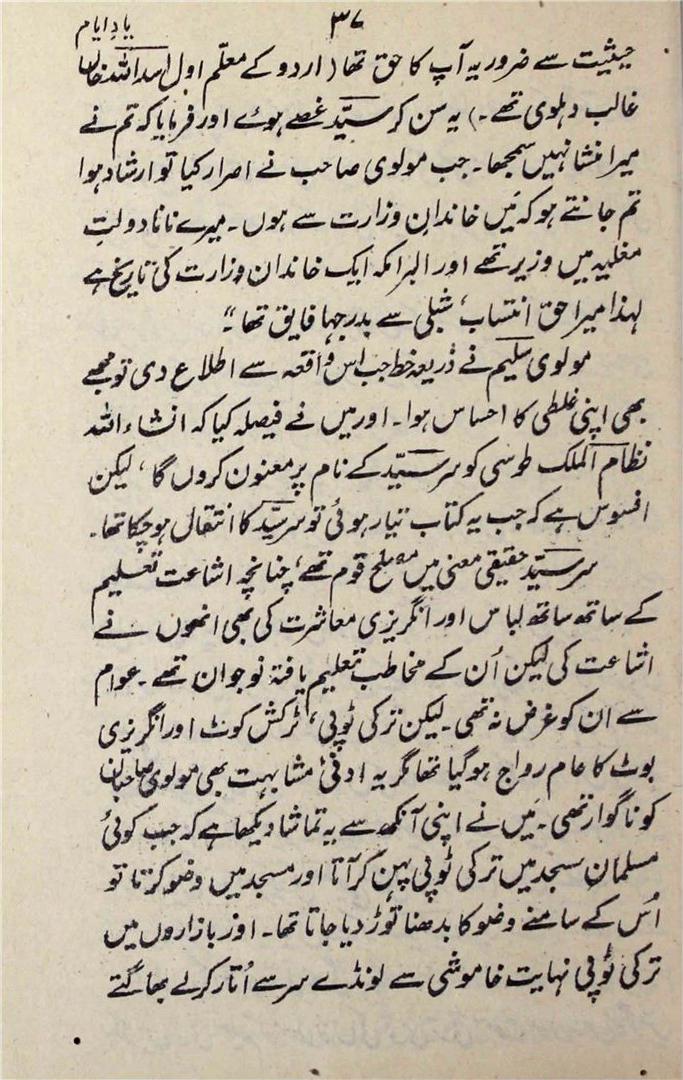 یادِ ایام
۳۷
حیثیت سے ضرور یہ آپ کا حق تھا (اردو کے معلّم اول اسد اللہ خاں
غالب دہلوی تھے۔) یہ سن کر سیّد غصے ہوئے اور فرمایا کہ تم نے
میرا منشا نہیں سمجھا۔ جب مولوی صاحب نے اصرار کیا تو ارشاد ہوا
تم جانتے ہو کہ مَیں خاندانِ وزارت سے ہوں۔ میرے نانا دولتِ
مغلیہ میں وزیر تھے اور البرامکہ ایک خاندان وزارت کی تاریخ ہے
لہذا میرا حق انتساب، شبلی سے بدرجہا فایق تھا“
مولوی سلیم نے ذریعہ خط جب اس واقعہ سے اطلاع دی تو مجھے
بھی اپنی غلطی کا احساس ہوا۔ اور میں نے فیصلہ کیا کہ انشاء اللہ
نظام الملک طوسی کو سر سیّد کے نام پر معنون کروں گا، لیکن
افسوس ہے کہ جب یہ کتاب تیار ہوئی تو سر سیّد کا انتقال ہو چکا تھا۔
سر سیّد حقیقی معنی میں مصلح قوم تھے، چنانچہ اشاعت تعلیم
کے ساتھ ساتھ لباس اور انگریزی معاشرت کی بھی انھوں نے
اشاعت کی لیکن اُن کے مخاطب تعلیم یافتہ نوجوان تھے۔ عوام
سے ان کو غرض نہ تھی۔ لیکن ترکی ٹوپی، ٹرکش کوٹ اور انگریزی
بوٹ کا عام رواج ہو گیا تھا مگر یہ ادنیٰ مشابہت بھی مولوی صاحبان
کو ناگوار تھی۔ مَیں نے اپنی آنکھ سے یہ تماشا دیکھا ہے کہ جب کوئی
مسلمان مسجد میں ترکی ٹوپی پہن کر آتا اور مسجد میں وضو کرتا تو
اُس کے سامنے وضو کا بدھنا توڑ دیا جاتا تھا۔ اور بازاروں میں
ترکی ٹوپی نہایت خاموشی سے لونڈے سر سے اُتار کر لے بھاگتے